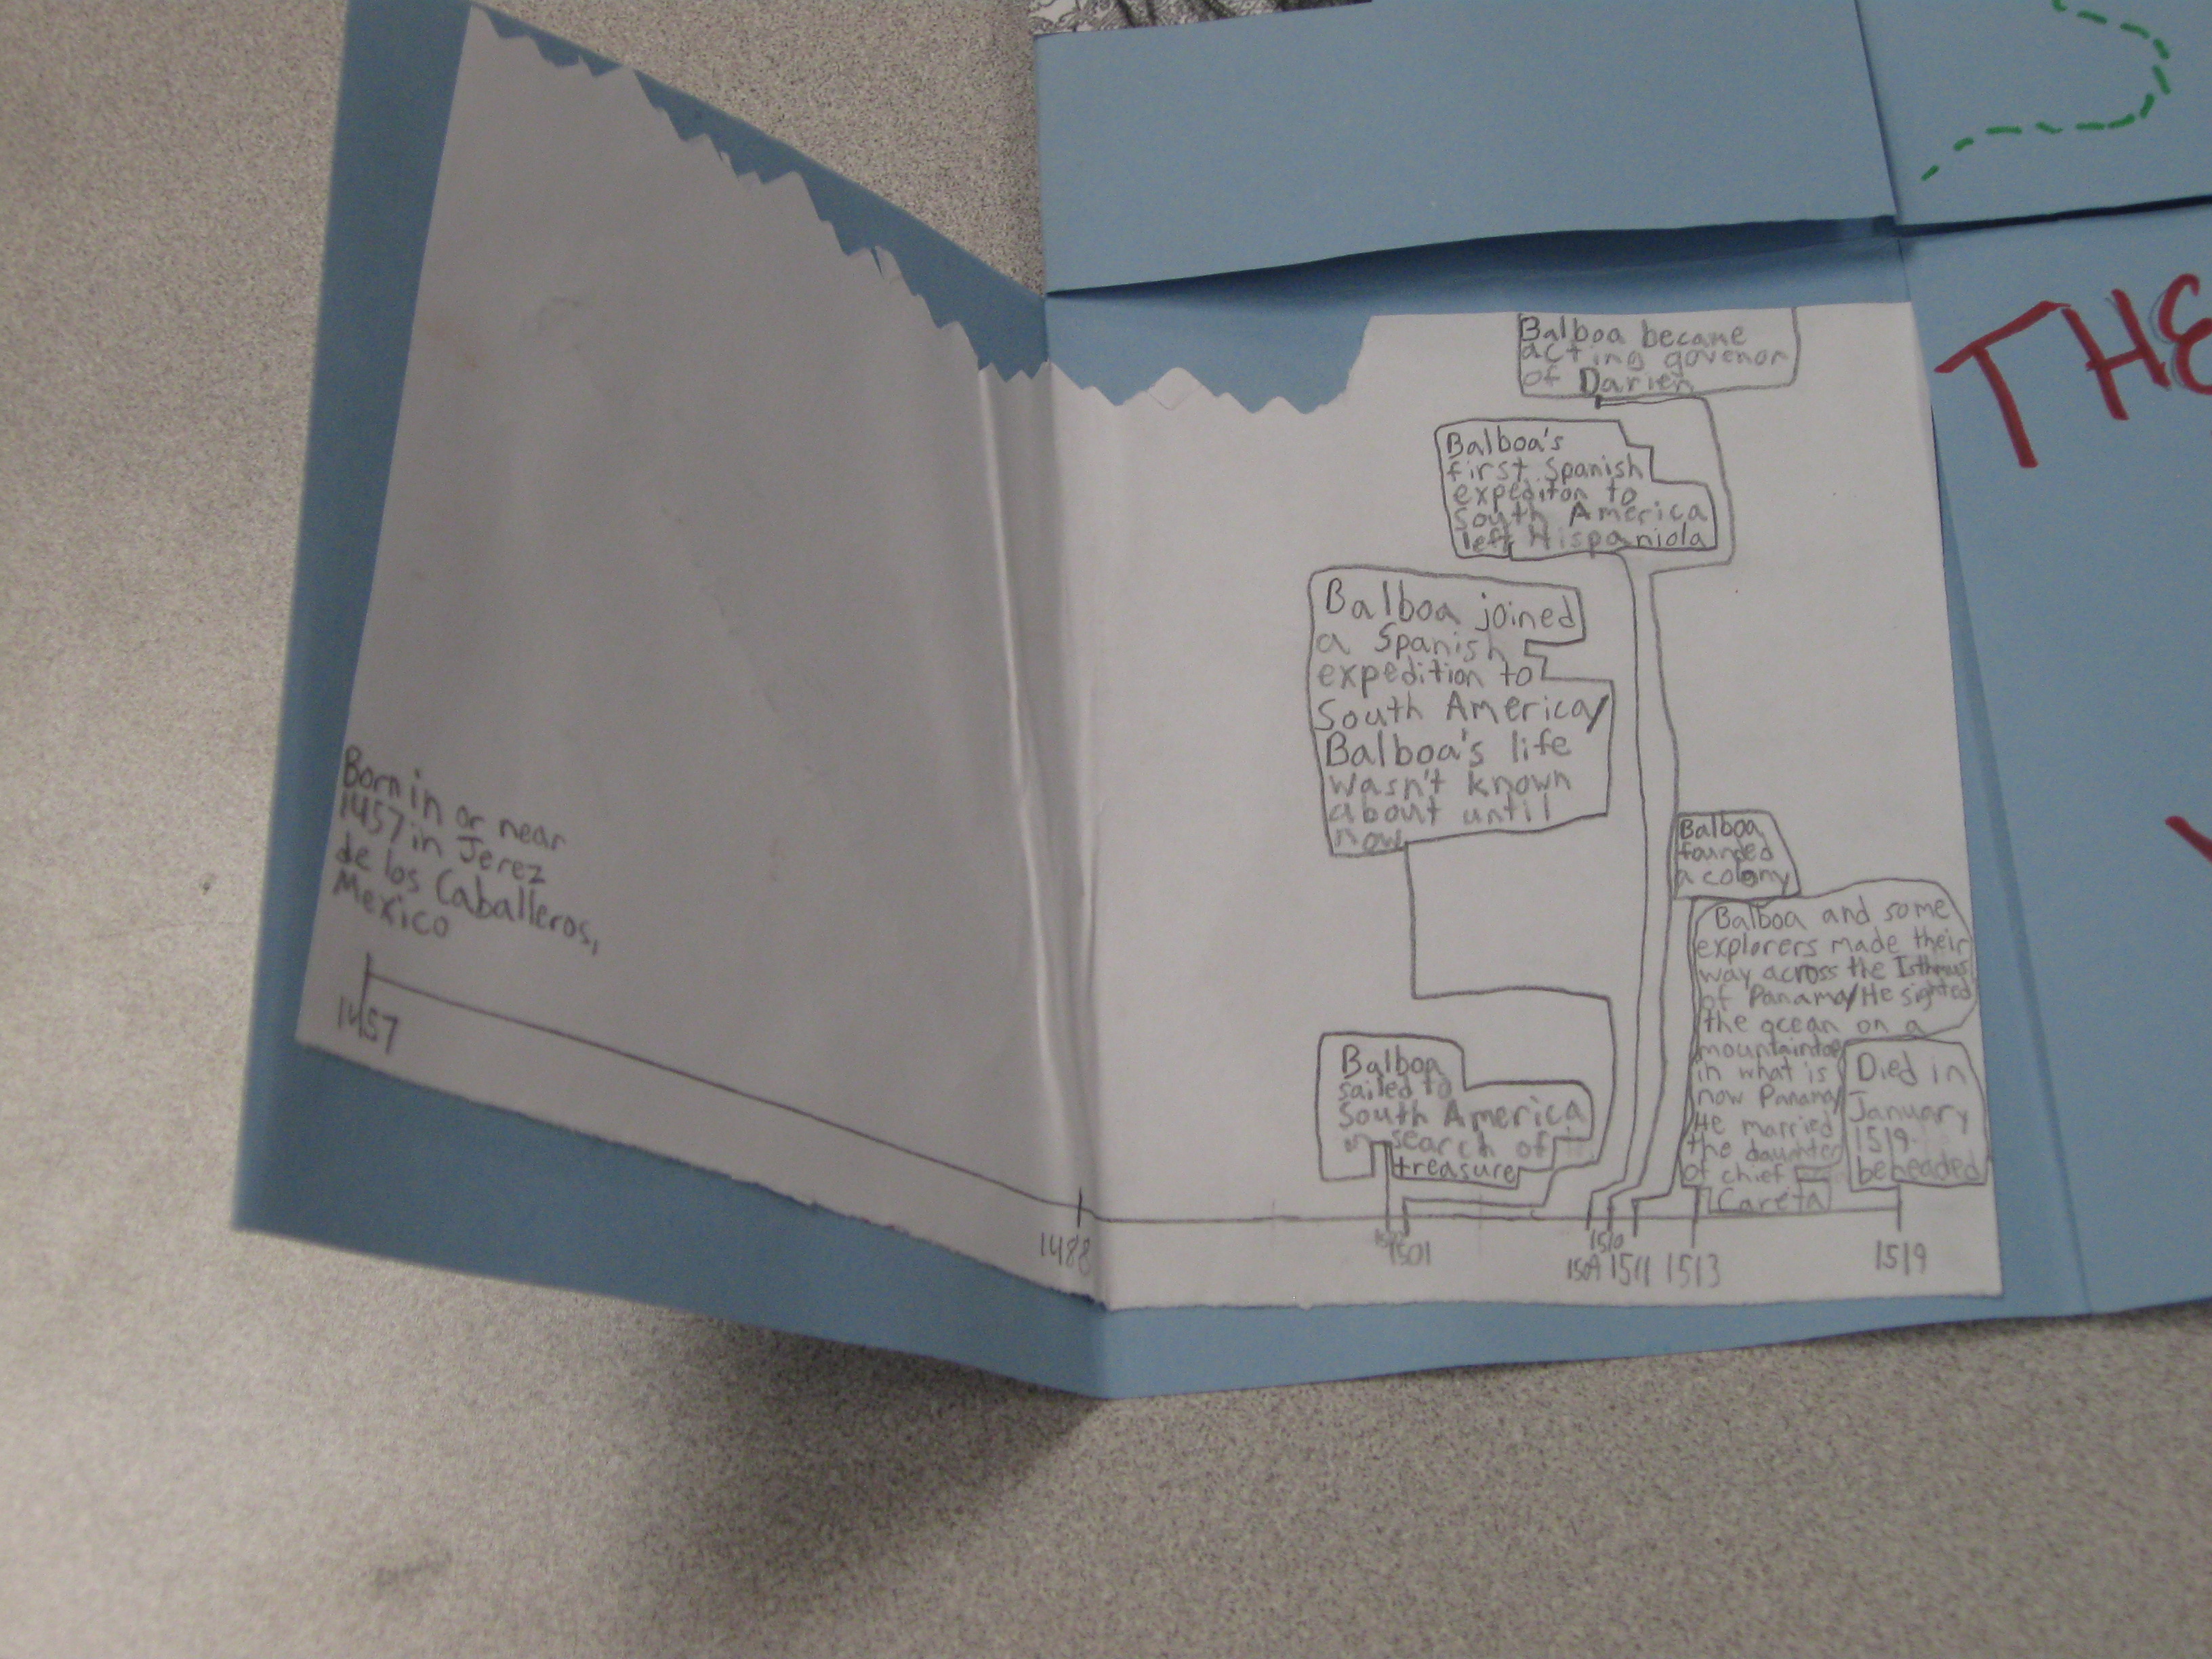 Born in or near
1457 in Jerez
de los Caballeros,
Mexico
1457
1488
Balboa became
acting govenor
of Darien
Balboa's
first Spanish
expediton to
South America
left Hispaniola
Balboa joined
a Spanish
expedition to
South America/
Balboa's life
wasn't known
about until
now
Balboa
sailed to
South America
in search of
treasure
Balboa
founded
a colony
Balboa and some
explorers made their
way across the Isthmus
of Panama/He sighted
the ocean on a
mountaintop
in what is
now Panama/
He married
the daughter
of chief
Careta
Died in
January
1519
beheaded
1501
1509
1510
1511
1513
1519
THE